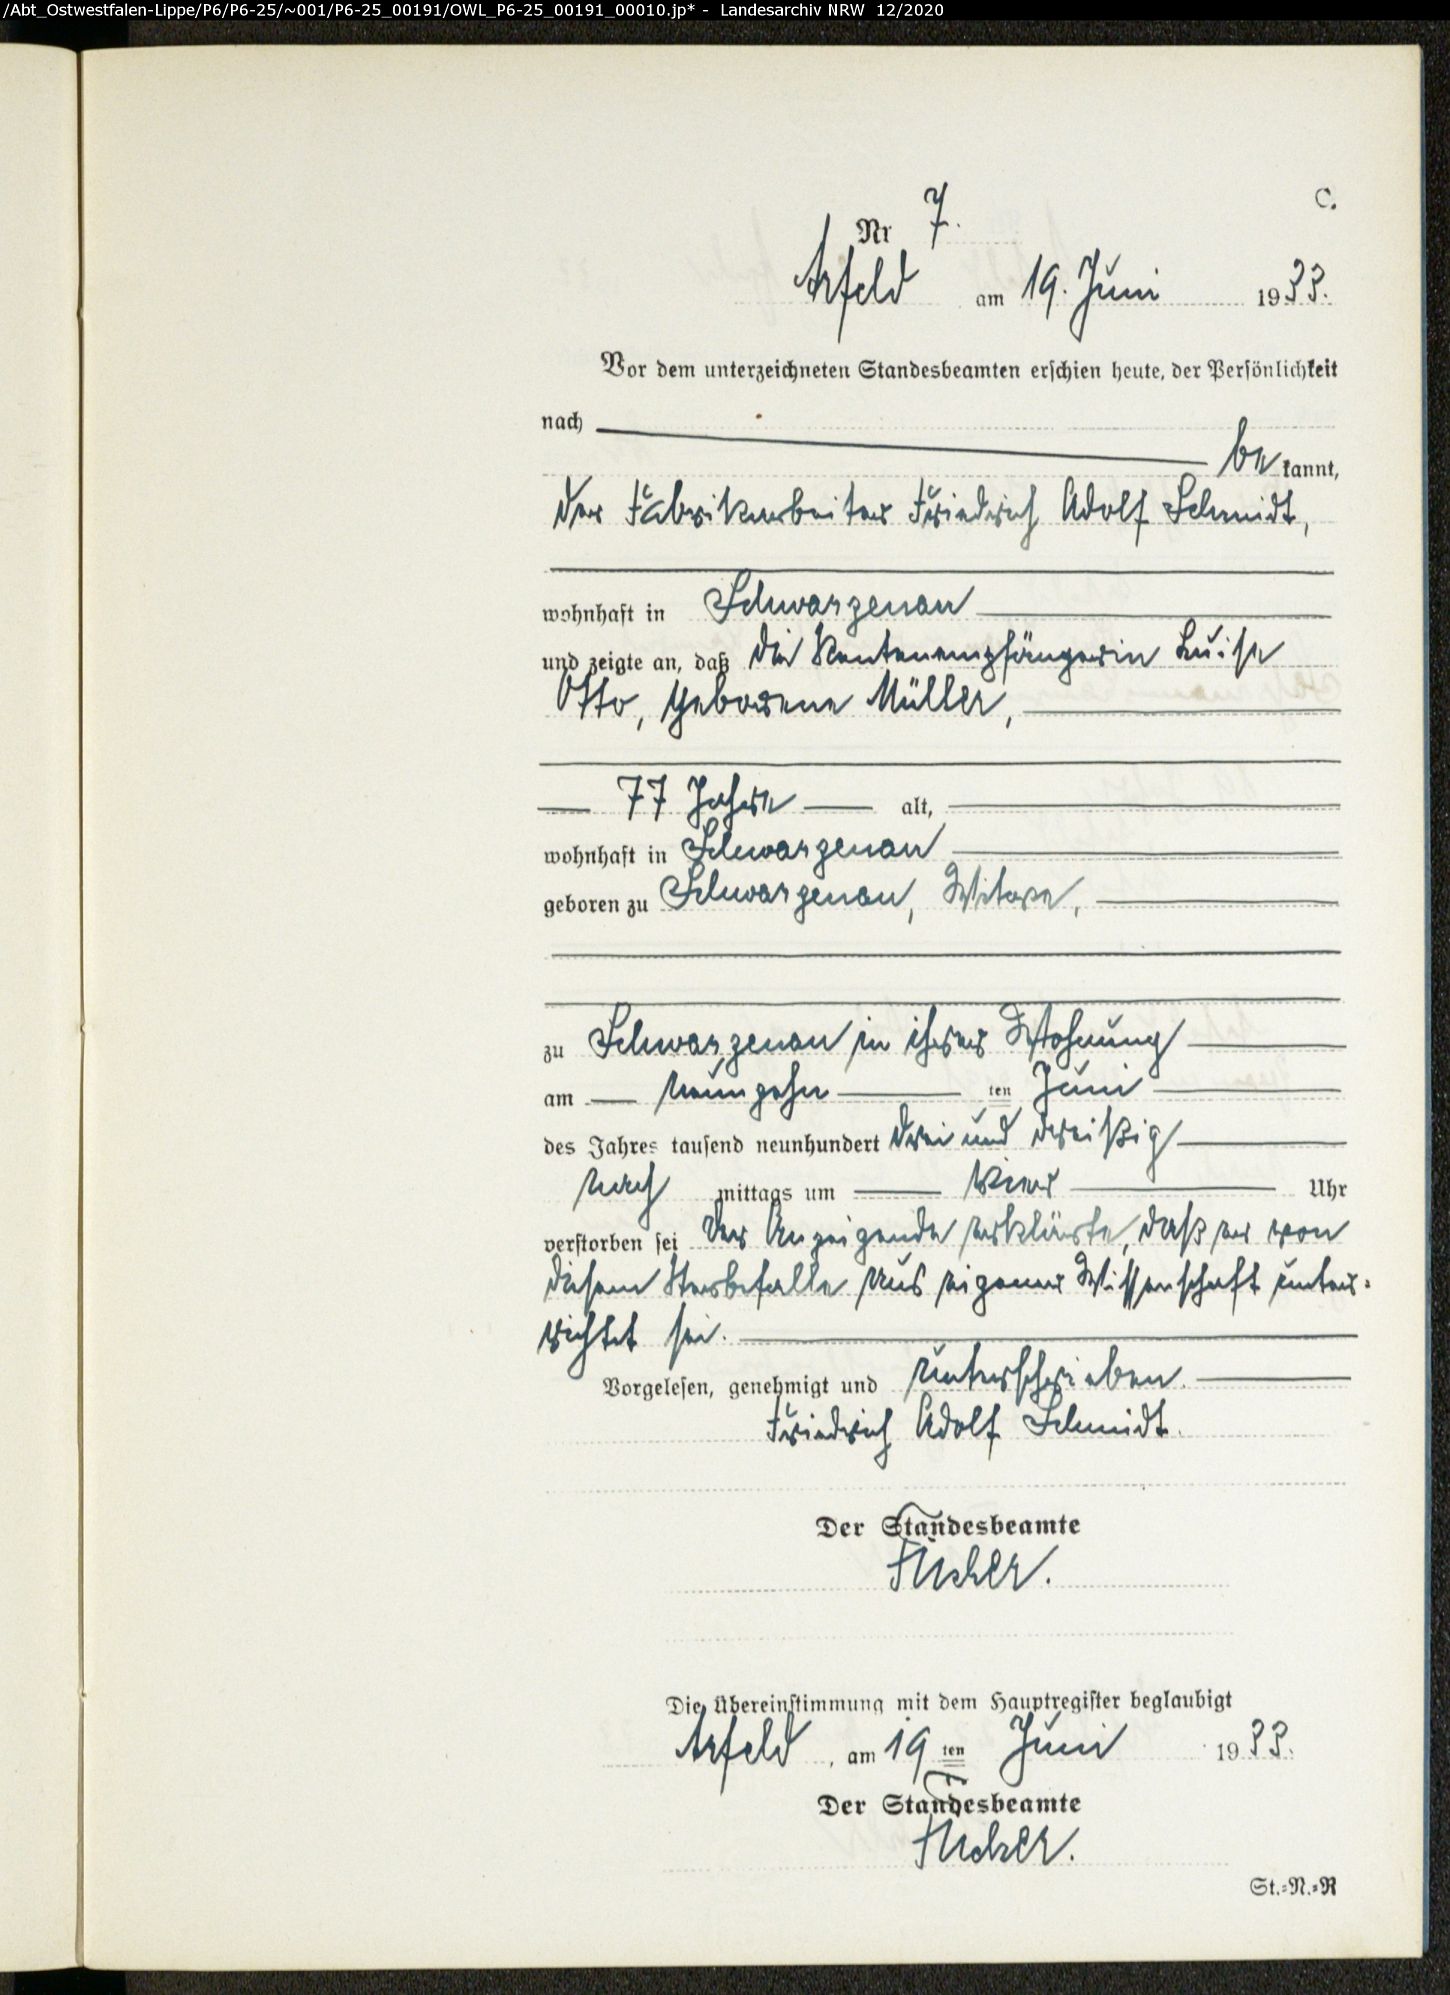 /Abt_Ostwestfalen-Lippe/P6/P6-25/~001/P6-25_00191/OWL_P6-25_00191_00010.jp* - Landesarchiv NRW 12/2020
C.
Nr 7.
Arfeld am 19. Juni 1933.
Vor dem unterzeichneten Standesbeamten erschien heute, der Persönlichkeit
nach
be kannt,
der Fabrikarbeiter Friedrich Adolf Schmidt,
wohnhaft in Schwarzenau
und zeigte an, daß die Rentenempfängerin Luise
Otto, geborene Müller,
77 Jahre alt,
wohnhaft in Schwarzenau
geboren zu Schwarzenau, Witwe,
zu Schwarzenau in ihrer Wohnung
am neunzehn ten Juni
des Jahres tausend neunhundert drei und dreißig
nach mittags um vier Uhr
verstorben sei Der Anzeigende erklärte, daß er von
diesem Sterbefalle aus eigener Wissenschaft unter-
richtet sei.
Vorgelesen, genehmigt und unterschrieben.
Friedrich Adolf Schmidt.
Der Standesbeamte
Die Übereinstimmung mit dem Hauptregister beglaubigt
Arfeld, am 19 ten Juni 1933.
Der Standesbeamte
St.-N.-R